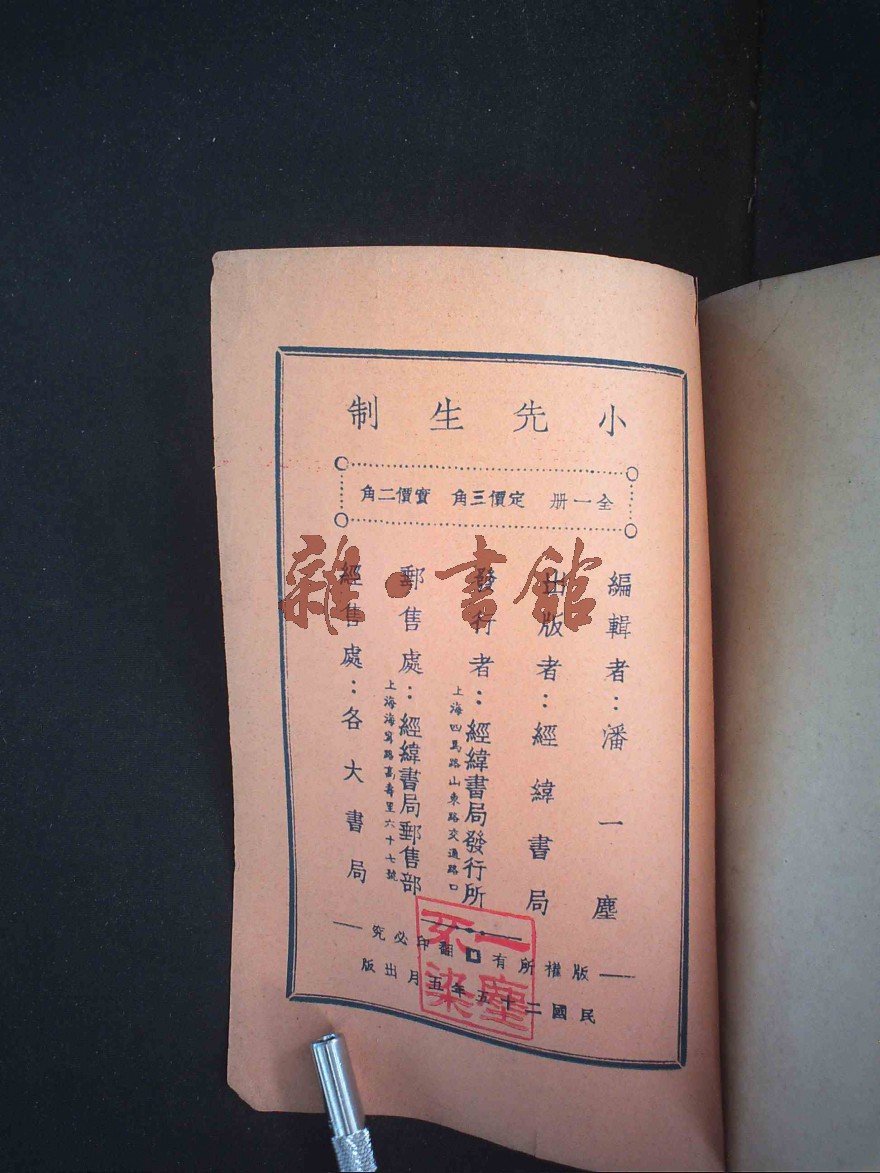 小先生制
全一册 定價三角 實價二角
編輯者：潘一塵
出版者：經緯書局
發行者：經緯書局發行所
上海四馬路山東路交通路口
郵售處：經緯書局郵售部
上海海寗路高壽里六十七號
經售處：各大書局
版權所有 翻印必究
民國二十五年五月出版
一塵不染
雜·書館